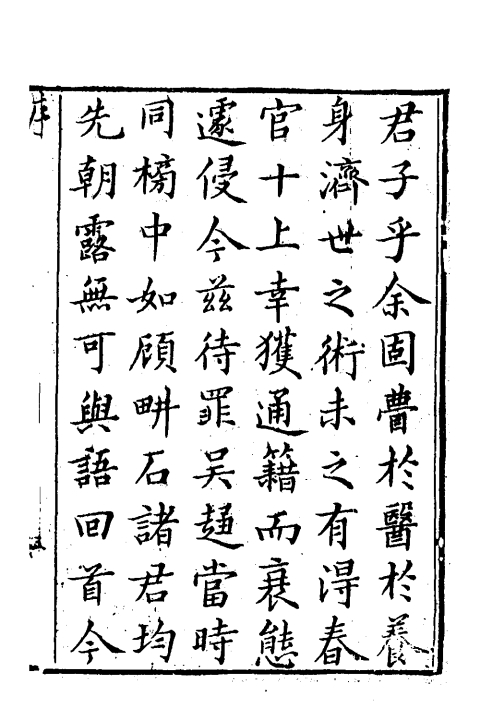 君子乎余固瞢於醫於養
身濟世之術未之有得春
官十上幸獲通籍而衰態
遽侵今茲待罪吳趨當時
同榜中如顧畊石諸君均
先朝露無可與語回首今
序